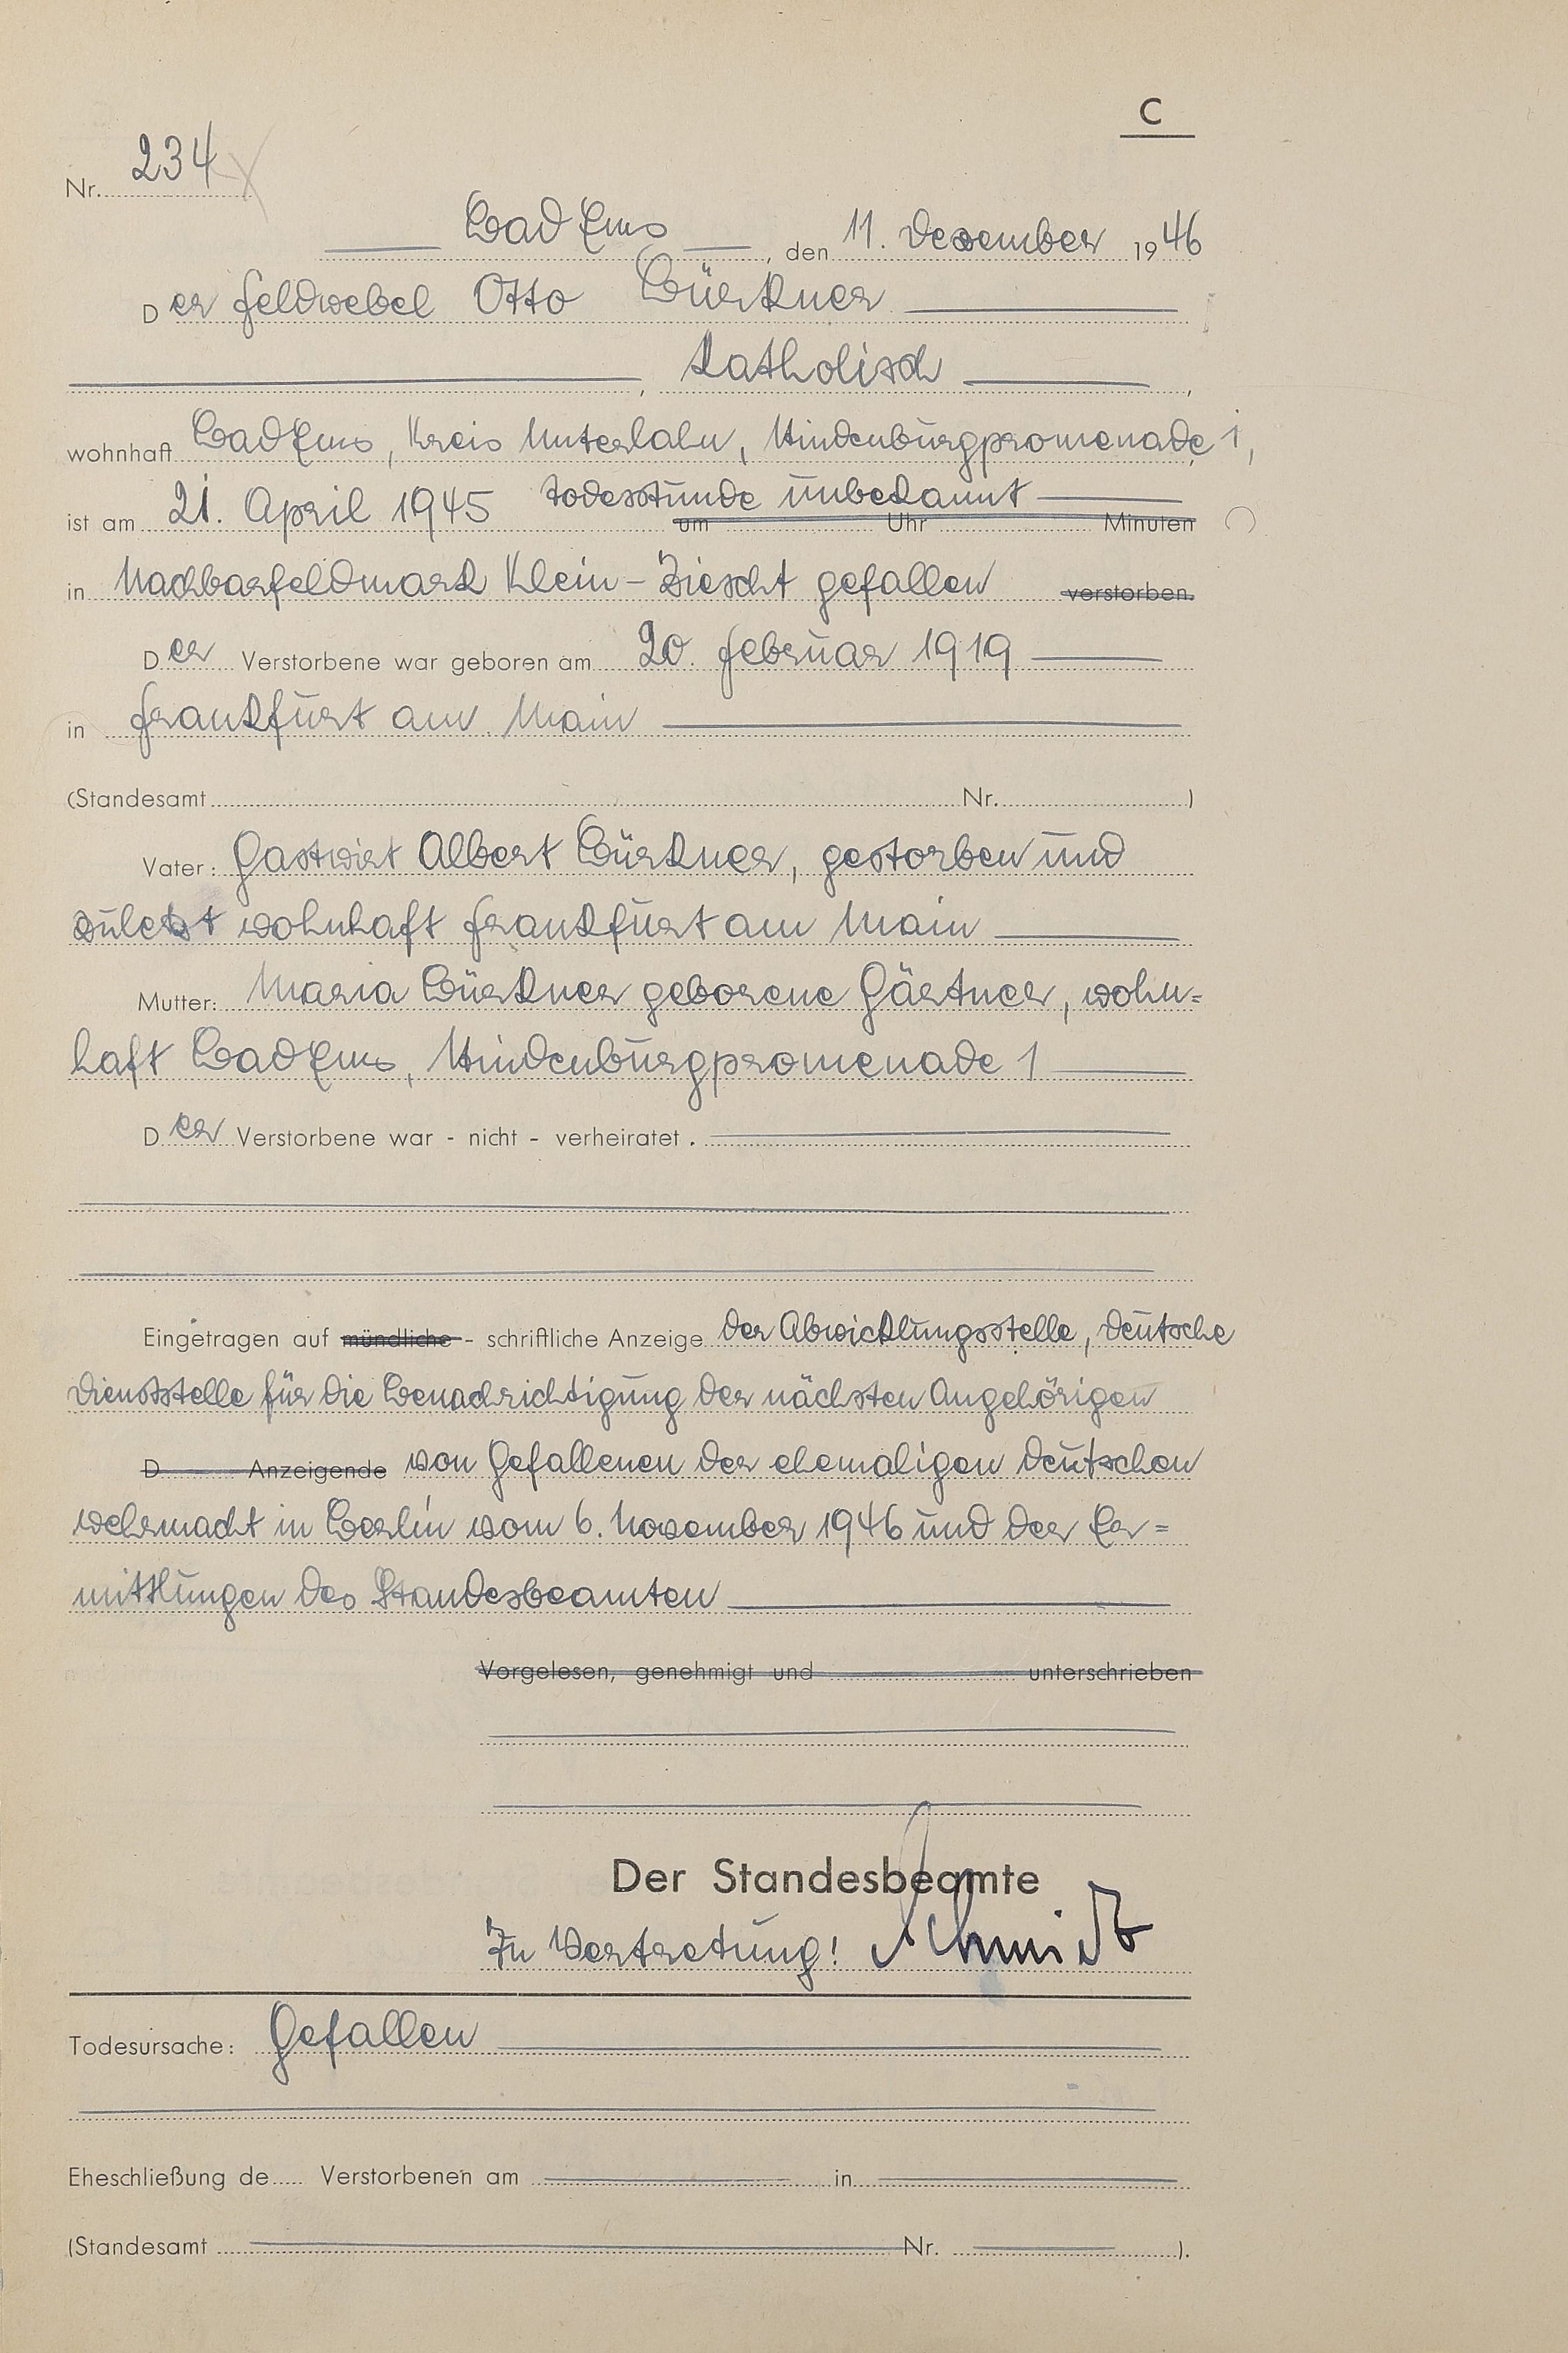 C
Nr. 234
Bad Ems, den 11. Dezember 1946
Der Feldwebel Otto Bürkner
, katholisch,
wohnhaft Bad Ems, Kreis Unterlahn, Hindenburgpromenade 1,
ist am 21. April 1945 Todesstunde unbekannt um Uhr Minuten
in Nachbarfeldmark Klein-Ziescht gefallen verstorben.
Der Verstorbene war geboren am 20. Februar 1919
in Frankfurt am Main
(Standesamt Nr. )
Vater: Gastwirt Albert Bürkner, gestorben und
zuletzt wohnhaft Frankfurt am Main
Mutter: Maria Bürkner geborene Gärtner, wohn=
haft Bad Ems, Hindenburgpromenade 1
Der Verstorbene war - nicht - verheiratet.
Eingetragen auf mündliche - schriftliche Anzeige der Abwicklungsstelle, Deutsche
Dienststelle für die Benachrichtigung der nächsten Angehörigen
D Anzeigende von Gefallenen der ehemaligen deutschen
Wehrmacht in Berlin vom 6. November 1946 und der Er=
mittlungen des Standesbeamten
Vorgelesen, genehmigt und unterschrieben
Der Standesbeamte
In Vertretung! Schmidt
Todesursache: Gefallen
Eheschließung de Verstorbenen am in
(Standesamt Nr. ).